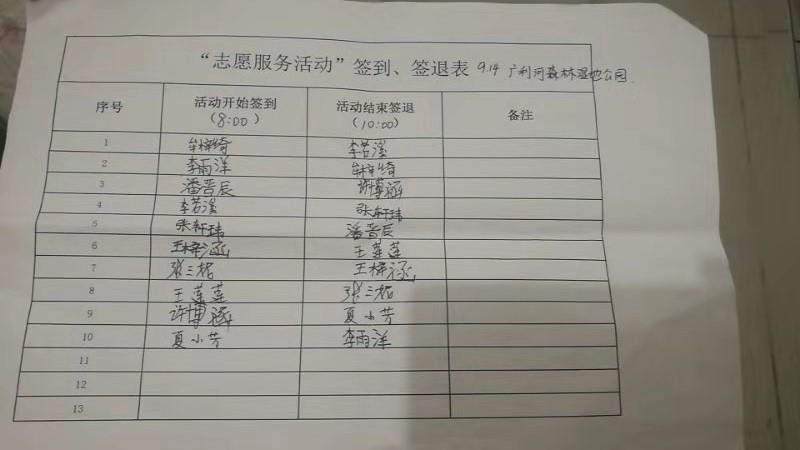 “志愿服务活动”签到、签退表 9.14 广利河森林湿地公园
序号 活动开始签到 (8:00) 活动结束签退 (10:00) 备注
1 牟梓绮 李若溪
2 李雨洋 牟梓绮
3 潘晋辰 许博涵
4 李若溪 张轩玮
5 张轩玮 潘晋辰
6 王梓涵 王莲莲
7 张三拓 王梓涵
8 王莲莲 张三拓
9 许博涵 夏小芳
10 夏小芳 李雨洋
11
12
13